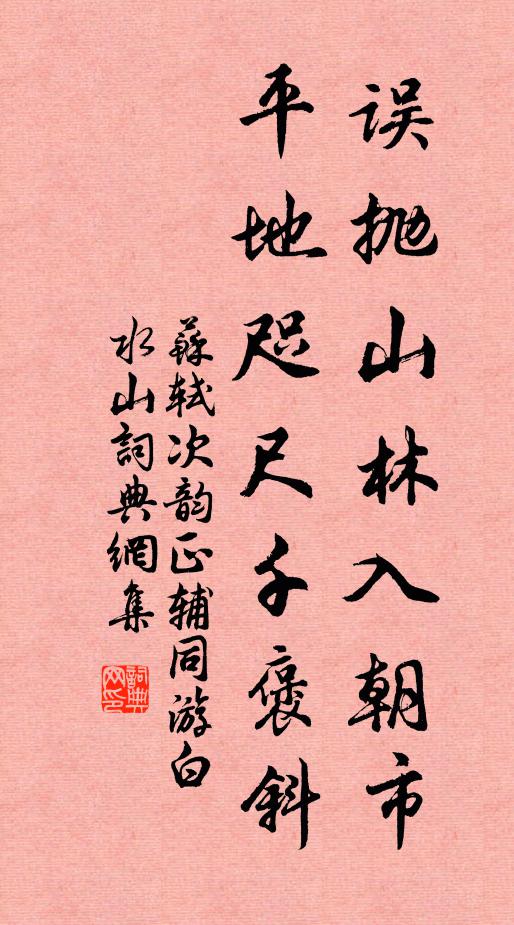 误抛山林入朝市
平地咫尺千褒斜
蘇轼次韵正辅同游白
水山詞典網集
詞典网印